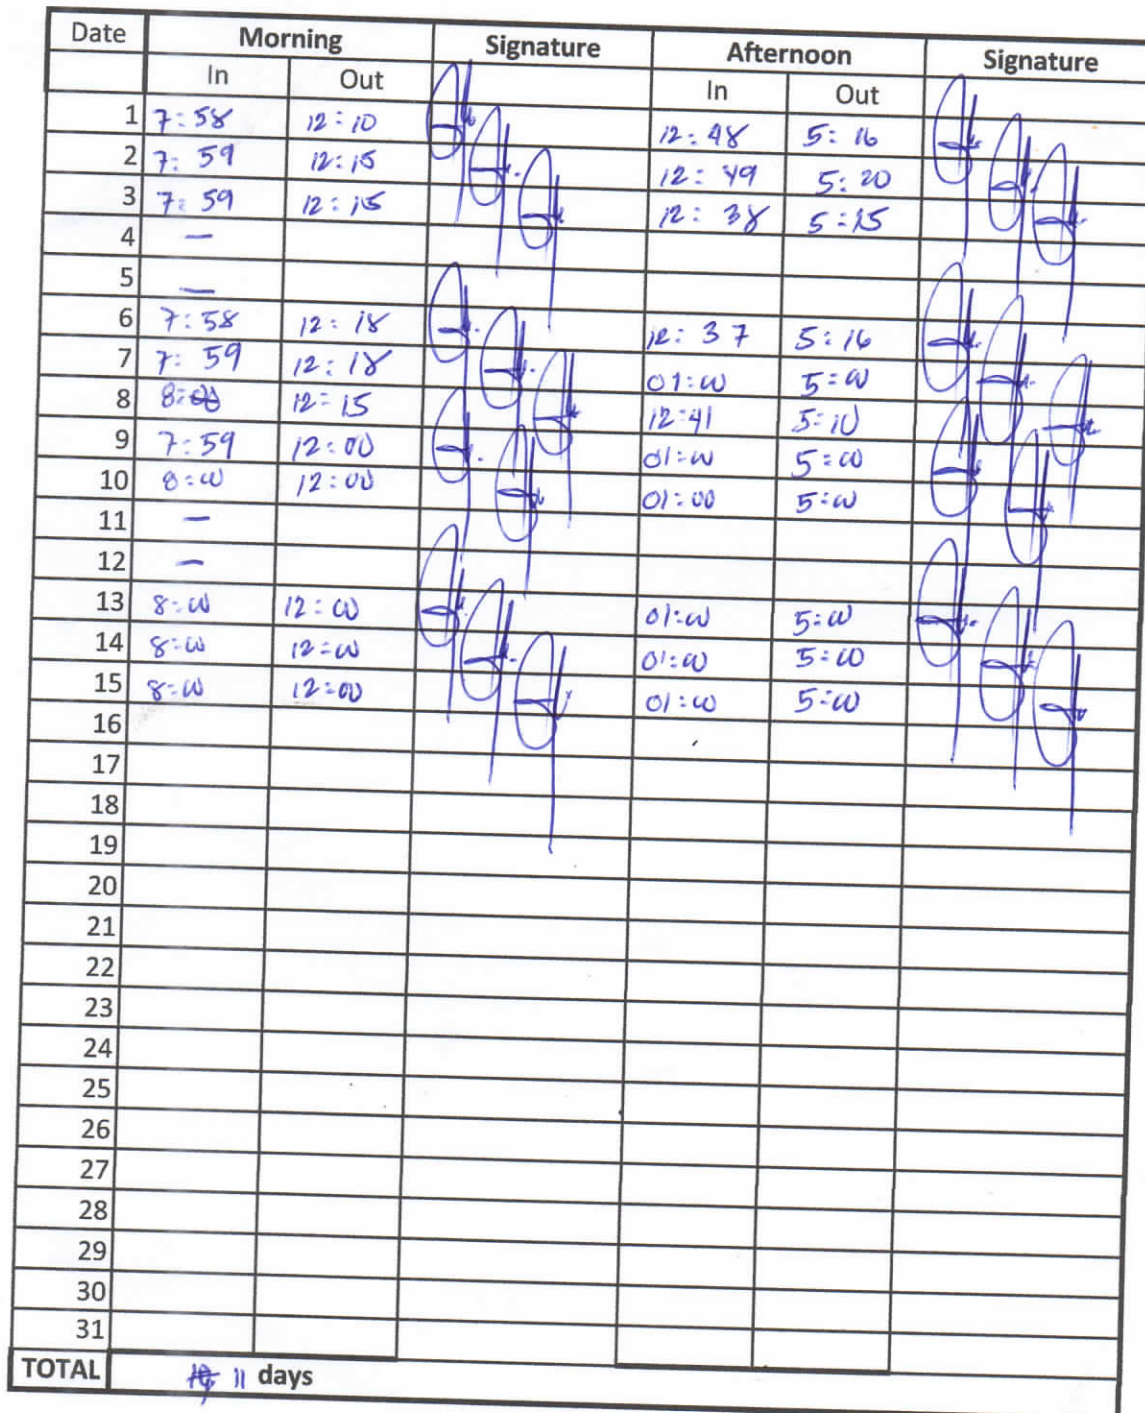 Date Morning Signature Afternoon Signature
In Out In Out
1 7:58 12:10 12:48 5:16
2 7:59 12:15 12:49 5:20
3 7:59 12:15 12:38 5:15
4 —
5 —
6 7:58 12:18 12:37 5:16
7 7:59 12:18 01:00 5:00
8 8:00 12:15 12:41 5:10
9 7:59 12:00 01:00 5:00
10 8:00 12:00 01:00 5:00
11 —
12 —
13 8:00 12:00 01:00 5:00
14 8:00 12:00 01:00 5:00
15 8:00 12:00 01:00 5:00
16
17
18
19
20
21
22
23
24
25
26
27
28
29
30
31
TOTAL 11 days